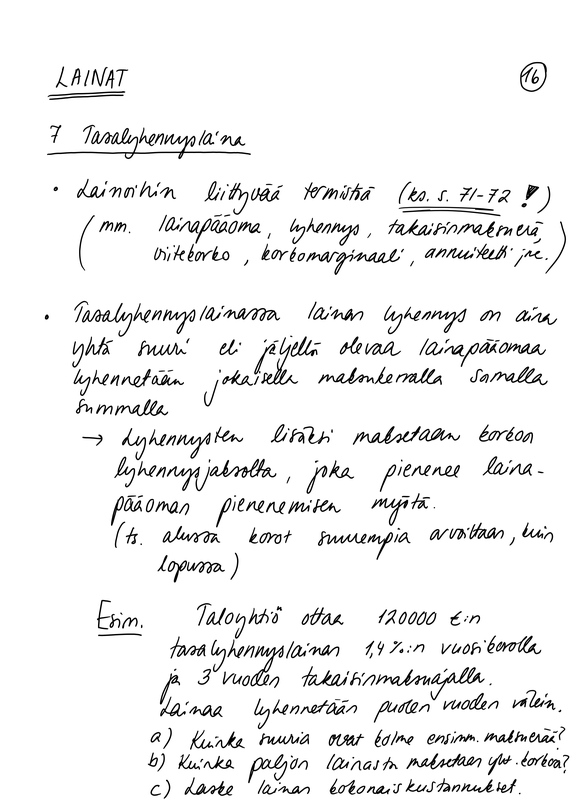 LAINAT
16
7 Tasalyhennyslaina
• Lainoihin liittyvää termistöä (ks. s. 71-72 !)
(mm. lainapääoma, lyhennys, takaisinmaksuerä,
viitekorko, korkomarginaali, annuiteetti jne.)
• Tasalyhennyslainassa lainan lyhennys on aina
yhtä suuri eli jäljellä olevaa lainapääomaa
lyhennetään jokaisella maksukerralla samalla
summalla
→ Lyhennysten lisäksi maksetaan korkoa
lyhennysjaksolta, joka pienenee laina-
pääoman pienenemisen myötä.
(ts. alussa korot suurempia arvoiltaan, kuin
lopussa)
Esim. Taloyhtiö ottaa 120000 €:n
tasalyhennyslainan 1,4 %:n vuosikorolla
ja 3 vuoden takaisinmaksuajalla.
Lainaa lyhennetään puolen vuoden välein.
a) Kuinka suuria ovat kolme ensimm. maksuerää?
b) Kuinka paljon lainasta maksetaan yht. korkoa?
c) Laske lainan kokonaiskustannukset.